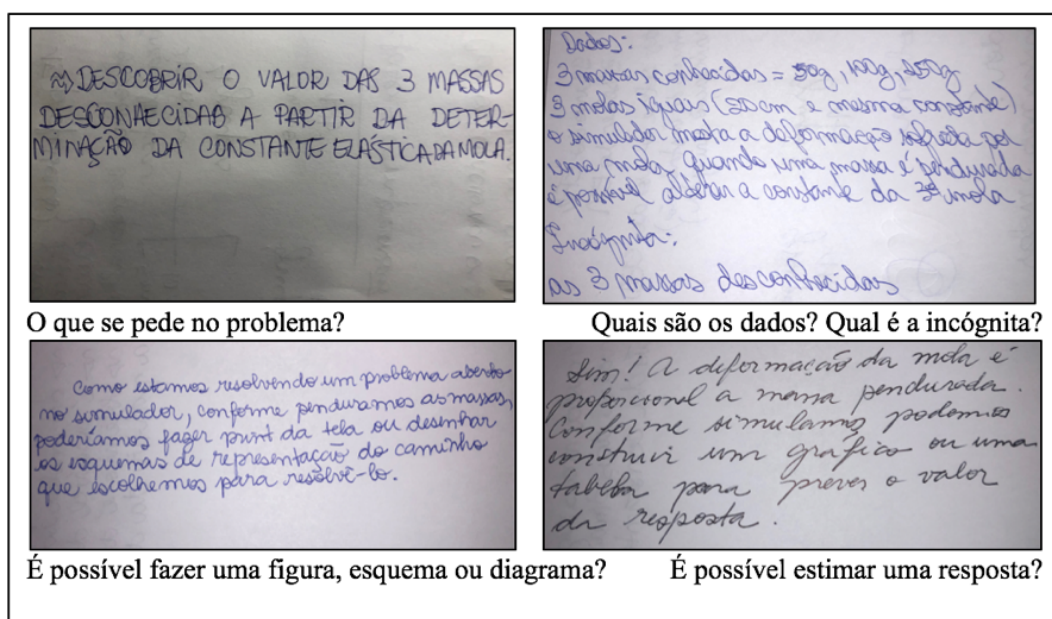 ⇝ DESCOBRIR O VALOR DAS 3 MASSAS
DESCONHECIDAS A PARTIR DA DETER-
MINAÇÃO DA CONSTANTE ELÁSTICA DA MOLA.
Dados:
3 massas conhecidas = 50g, 100g, 250g
3 molas iguais (20cm e mesma constante)
o simulador mostra a deformação sofrida por
uma mola quando uma massa é pendurada
é possível alterar a constante da 3ª mola
Incógnita:
as 3 massas desconhecidas
O que se pede no problema?
Quais são os dados? Qual é a incógnita?
Como estamos resolvendo um problema aberto
no simulador, conforme penduramos as massas,
poderíamos fazer print da tela ou desenhar
os esquemas de representação do caminho
que escolhemos para resolvê-lo.
Sim! A deformação da mola é
proporcional a massa pendurada.
Conforme simulamos podemos
construir um gráfico ou uma
tabela para prever o valor
da resposta.
É possível fazer uma figura, esquema ou diagrama?
É possível estimar uma resposta?